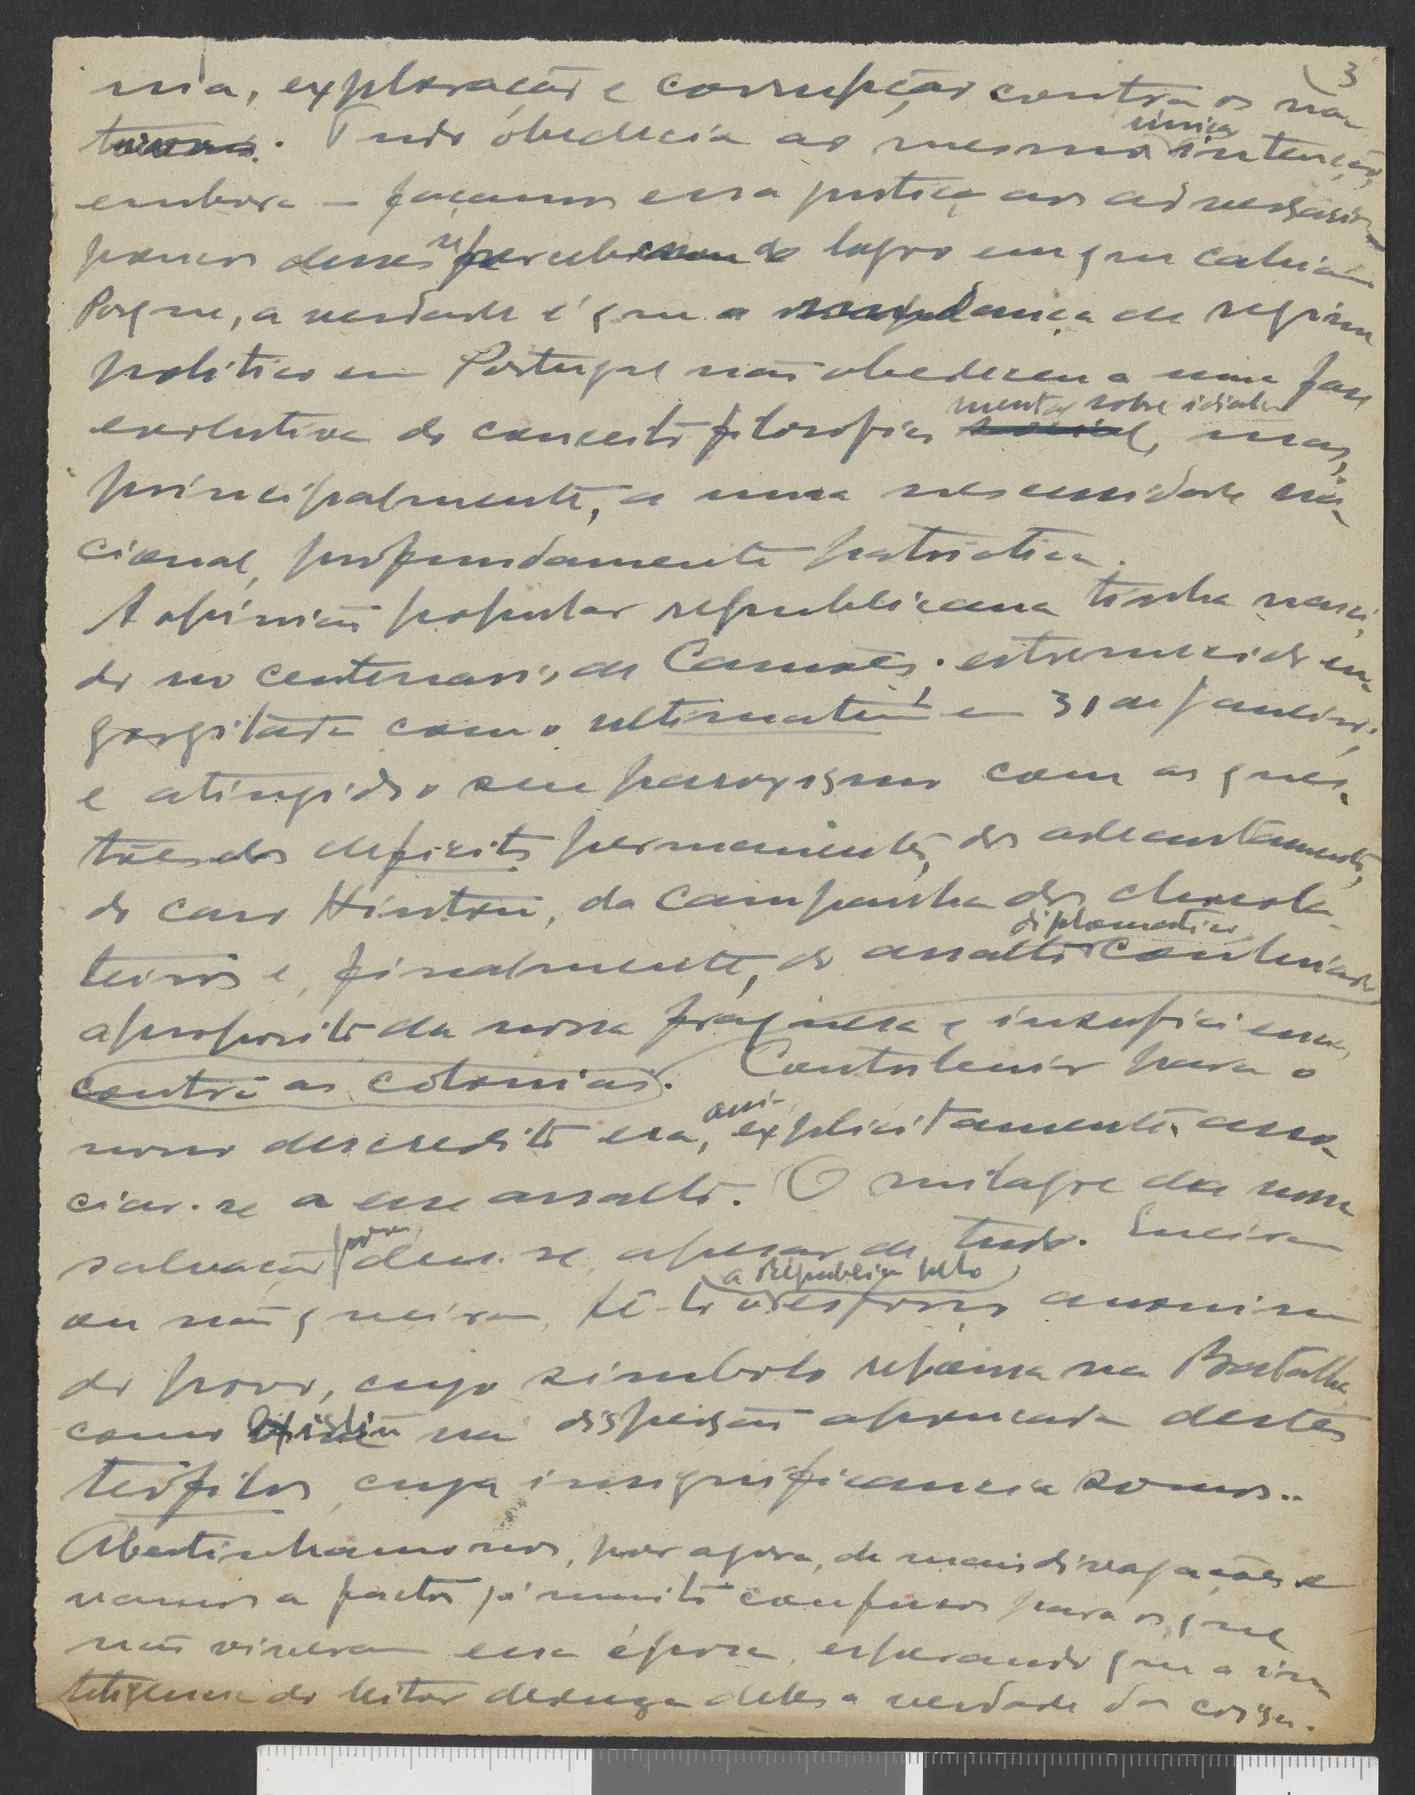 3
nia, exploração e corrupção contra os na-
turais. Tudo obedecia ao mesmo unica intenção,
embora — façamos essa justiça aos adversarios —
poucos desses se percebessem do logro em que cahiam.
Porque, a verdade é que a mudança de regimen
politico em Portugal não obedeceu a uma fase
evolutiva do conceito filosofico mental sobre idiala social, mas,
principalmente, a uma necessidade na-
cional, profundamente patriotica.
A opinião popular republicana tinha nasci-
do no centenario de Camões; estremecido en-
gorgitada com o ultimatum em 31 de Janeiro;
e atingido o seu paroxismo com as ques-
tões dos deficits permanentes, dos adeantamentos,
do caso Hinton, da campanha dos chocola-
teiros e, finalmente, do assalto diplomatico continuado
a proposito da nossa fraqueza e insuficiencia,
contra as colonias. Contribuir para o
nosso descredito era, assim, explicitamente asso-
ciar-se a esse assalto. O milagre da nossa
salvação porem deu-se, apesar de tudo. Queiram
ou não queiram, fê-lo a Republica pelo esforço anonimo
do povo, cujo simbolo repousa na Batalha
como na dispersão apoucada destes
teófilos, cuja insignificancia somos..
Abstinhamo-nos, por agora, de mais divagações e
vamos a factos já muito confusos para os que
não viveram essa época, esperando que a in-
teligencia do leitor deduza deles a verdade das coisas.